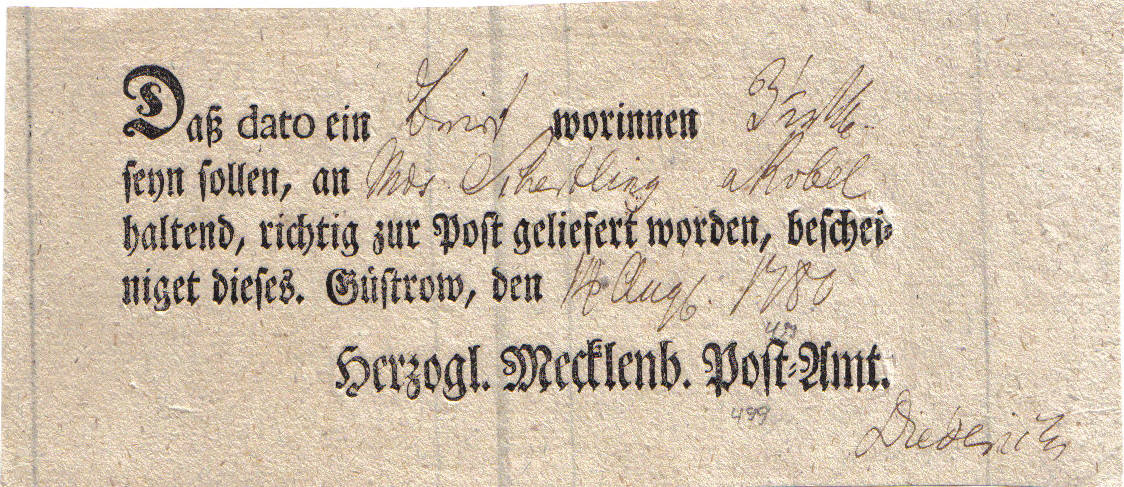 Daß dato ein Brief worinnen
seyn sollen, an Mds. Scherling a Robel
haltend, richtig zur Post geliefert worden, beschei-
niget dieses. Güstrow, den Aug. 1780
499
Herzogl. Mecklenb. Post-Amt.
499
Diederichs